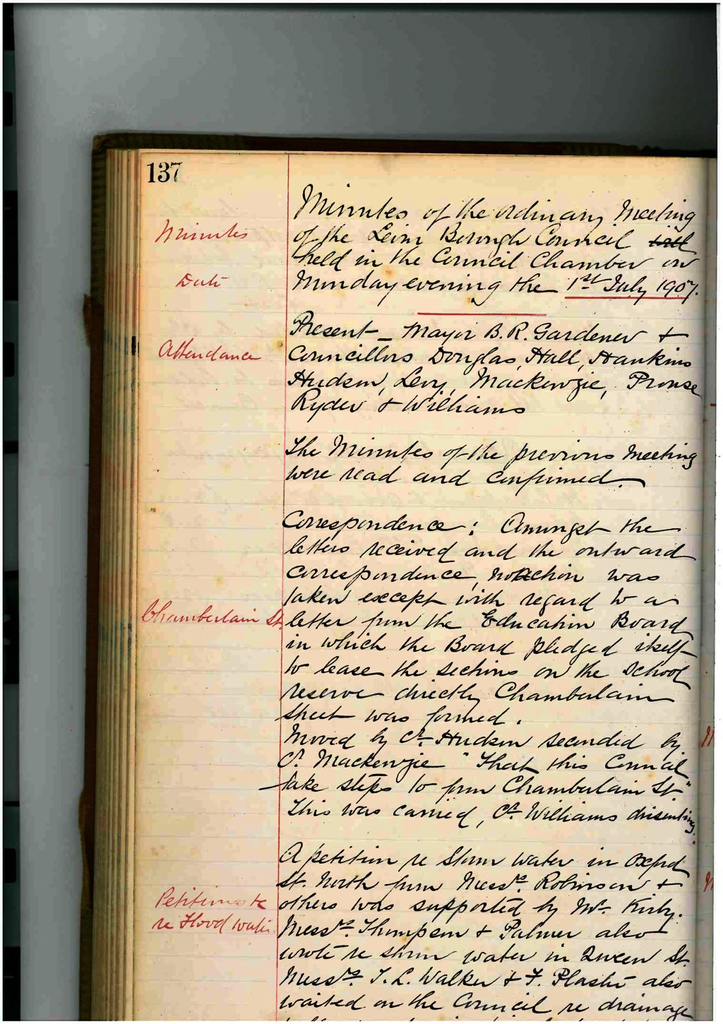 137
Minutes of the ordinary Meeting
Minutes
of the Levin Borough Council
held in the Council Chamber on
Date
Monday evening the 1st July 1907.
Present - Mayor B. R. Gardener &
Attendance
Councillors Douglas, Hall, Hankins
Hudson, Levy, Mackenzie, Prouse
Ryder & Williams
The Minutes of the previous Meeting
were read and confirmed.
Correspondence: Amongst the
letters received and the outward
correspondence, no action was
taken except with regard to a
Chamberlain St.
letter from the Education Board
in which the Board pledged itself
to lease the sections on the school
reserve directly Chamberlain
Street was formed.
Moved by Cr. Hudson seconded by
Cr. Mackenzie "That this Council
take steps to form Chamberlain St"
This was carried, Cr. Williams dissenting.
A petition re Storm water in Oxford
St. North from Messrs. Robinson &
Petitions
others was supported by Mr. Kirby.
re Flood water
Messrs. Thompson & Palmer also
wrote re storm water in Queen St.
Messrs. T. L. Walker & F. also
waited on the Council re drainage